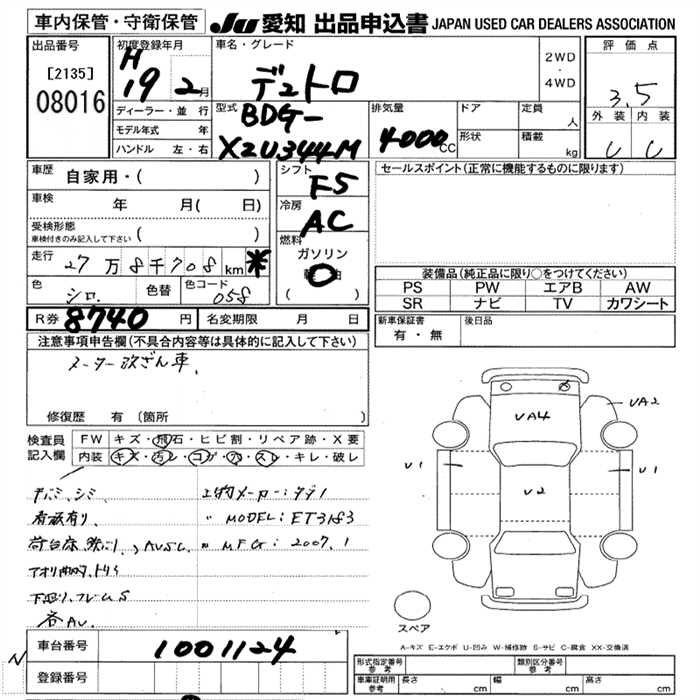 車内保管・守衛保管 JU 愛知 出品申込書 JAPAN USED CAR DEALERS ASSOCIATION
出品番号
[2135]
08016
初度登録年月
H
19 2月
ディーラー・並 行
モデル年式 年
ハンドル 左・右
車名・グレード
デュトロ
2WD
・
4WD
型式
BDG-
XZU344M
排気量
4000cc
ドア
形状
定員
人
積載
kg
評 価 点
3.5
外 装 内 装
C C
車歴
自家用・( )
車検
年 月( 日)
受検形態
車検付きのみ記入して下さい ( )
走行
27万8千708km *
色
シロ
色替
色コード
058
シフト
F5
冷房
AC
燃料
ガソリン
軽 油
( )
セールスポイント(正常に機能するものに限ります)
装備品(純正品に限り○をつけてください)
PS PW エアB AW
SR ナビ TV カワシート
R券 8740円 名変期限 月 日
新車保証書
有・無
後日品
注意事項申告欄(不具合内容等は具体的に記入して下さい)
メーター改ざん車、
修復歴 有(箇所 )
検査員
記入欄
FW キズ・飛石・ヒビ割・リペア跡・X要
内装 キズ・汚レ・コゲ・穴・スレ・キレ・破レ
看板有り、
〃 MODEL: ET3183
〃 MFG: 2007.1
UA4
UA2
U1
U2
U1
スペア
A-キズ E-エクボ U-凹み W-補修跡 S-サビ C-腐食 XX-交換済
N
車台番号 1001124
登録番号
形式指定番号
参 考
類別区分番号
参 考
車庫証明用
参 考
長さ cm 幅 cm 高さ cm